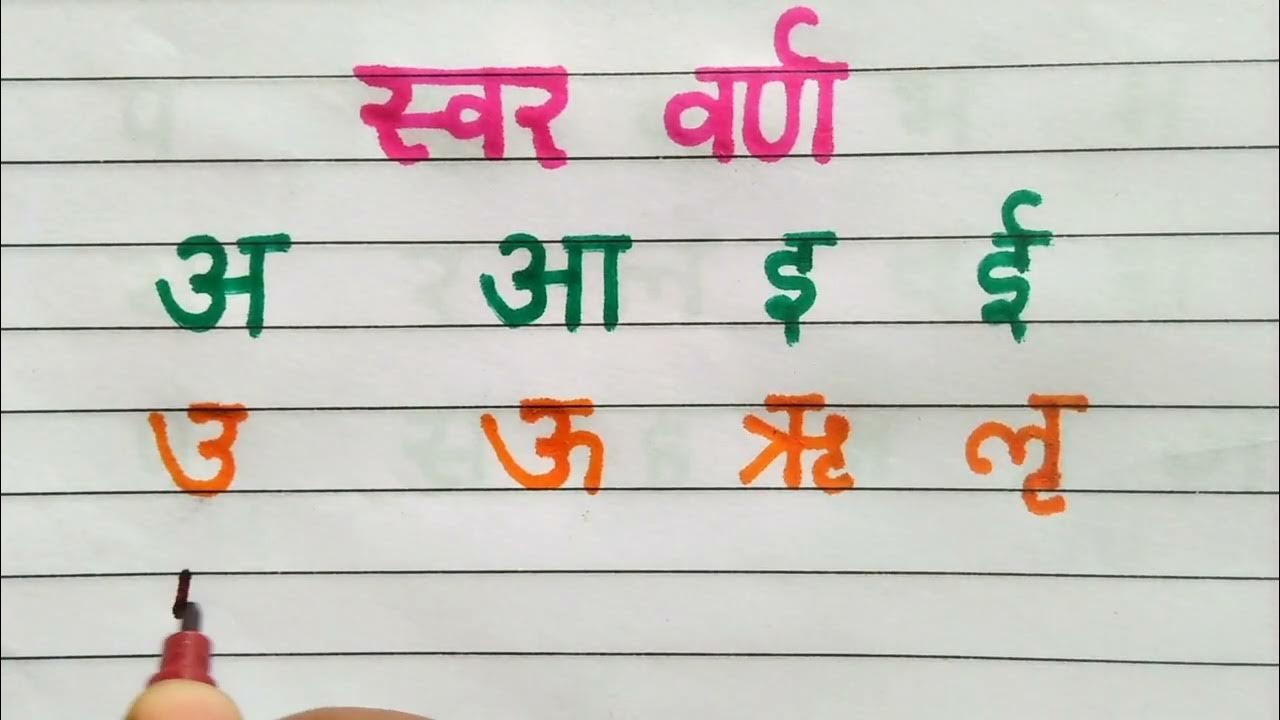 स्वर वर्ण
अ आ इ ई
उ ऊ ऋ लृ